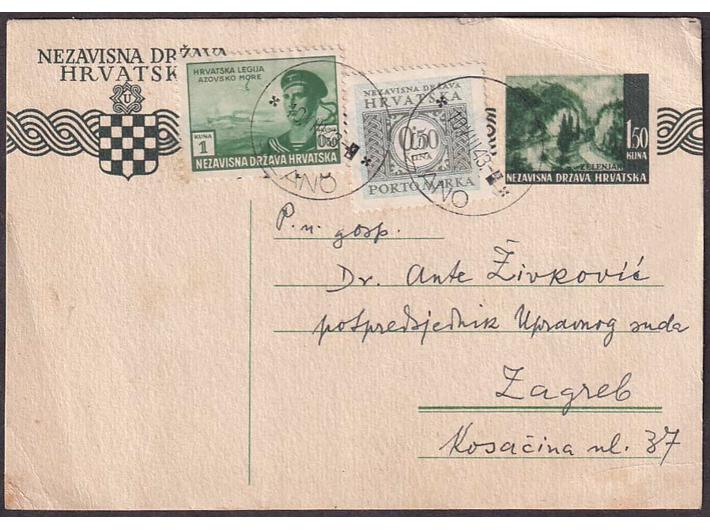 NEZAVISNA DRŽAVA
HRVATSK
U
HRVATSKA LEGIJA
AZOVSKO MORE
KUNA
1
NEZAVISNA DRŽAVA HRVATSKA
NEZAVISNA DRŽAVA
HRVATSKA
0.50
KUNA
PORTO MARKA
1.50
KUNA
ZELENJAK
NEZAVISNA DRŽAVA HRVATSKA
P. n. gosp.
Dr. Ante Živković
potpredsjednik Upravnog suda
Zagreb
Kosačina ul. 37